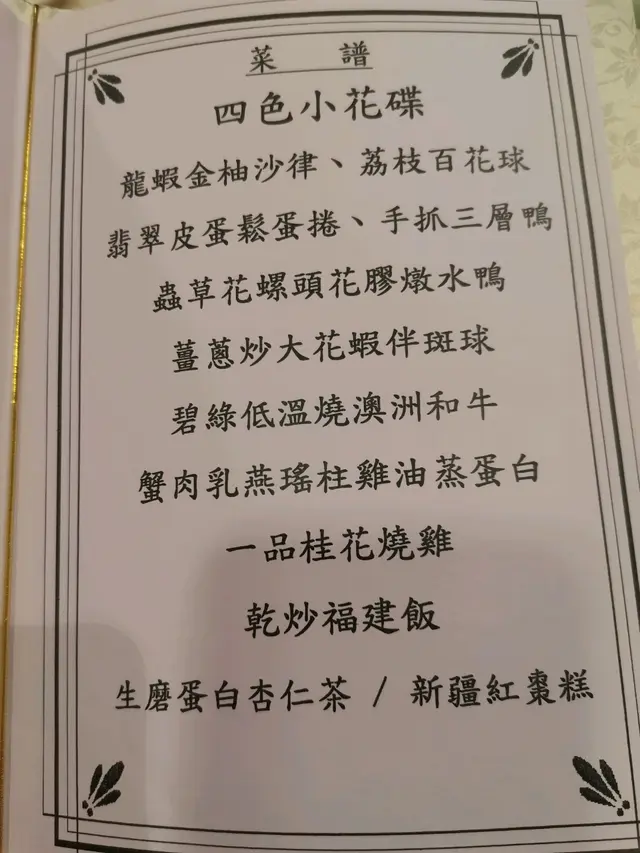 菜 譜
四色小花碟
龍蝦金柚沙律、荔枝百花球
翡翠皮蛋鬆蛋捲、手抓三層鴨
蟲草花螺頭花膠燉水鴨
薑蔥炒大花蝦伴斑球
碧綠低溫燒澳洲和牛
蟹肉乳燕瑤柱雞油蒸蛋白
一品桂花燒雞
乾炒福建飯
生磨蛋白杏仁茶 / 新疆紅棗糕